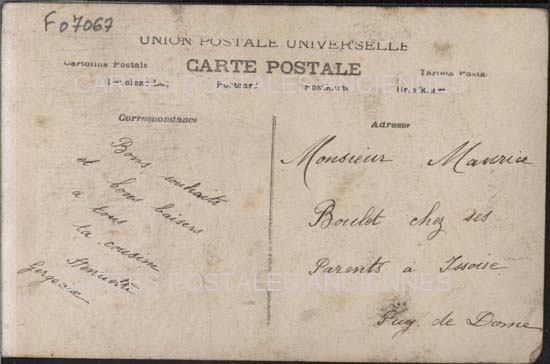 F 07067
UNION POSTALE UNIVERSELLE
CARTE POSTALE
Cartolina Postale
Tarjeta Postal
Postcard
CARTES POSTALES ANCIENNES
Correspondance
Adresse
Bons souhaits
et bons baisers
à tous
ta cousine
Henriette
Monsieur Maurice
Boulet chez ses
Parents à Issoire
Puy de Dome
CARTES POSTALES ANCIENNES